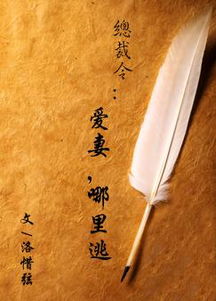 總裁令：
爱妻，哪里逃
文一洛惜弦